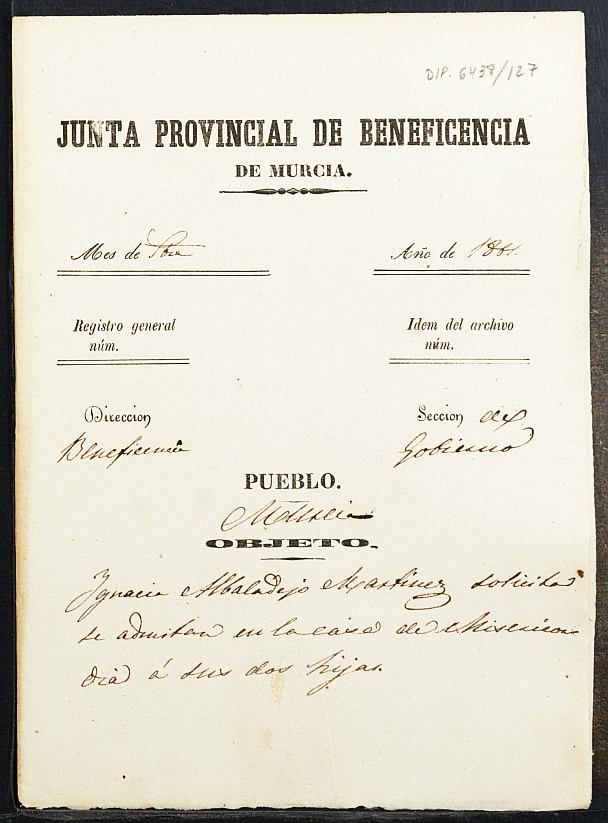 DIP. 6438/127
JUNTA PROVINCIAL DE BENEFICENCIA
DE MURCIA.
Mes de
Año de 1861.
Registro general
núm.
Idem del archivo
núm.
Direccion
Beneficencia
Seccion de
Gobierno
PUEBLO.
Murcia
OBJETO.
Ignacia Albaladejo Martinez solicita
se admitan en la casa de Misericor-
dia á sus dos hijas.